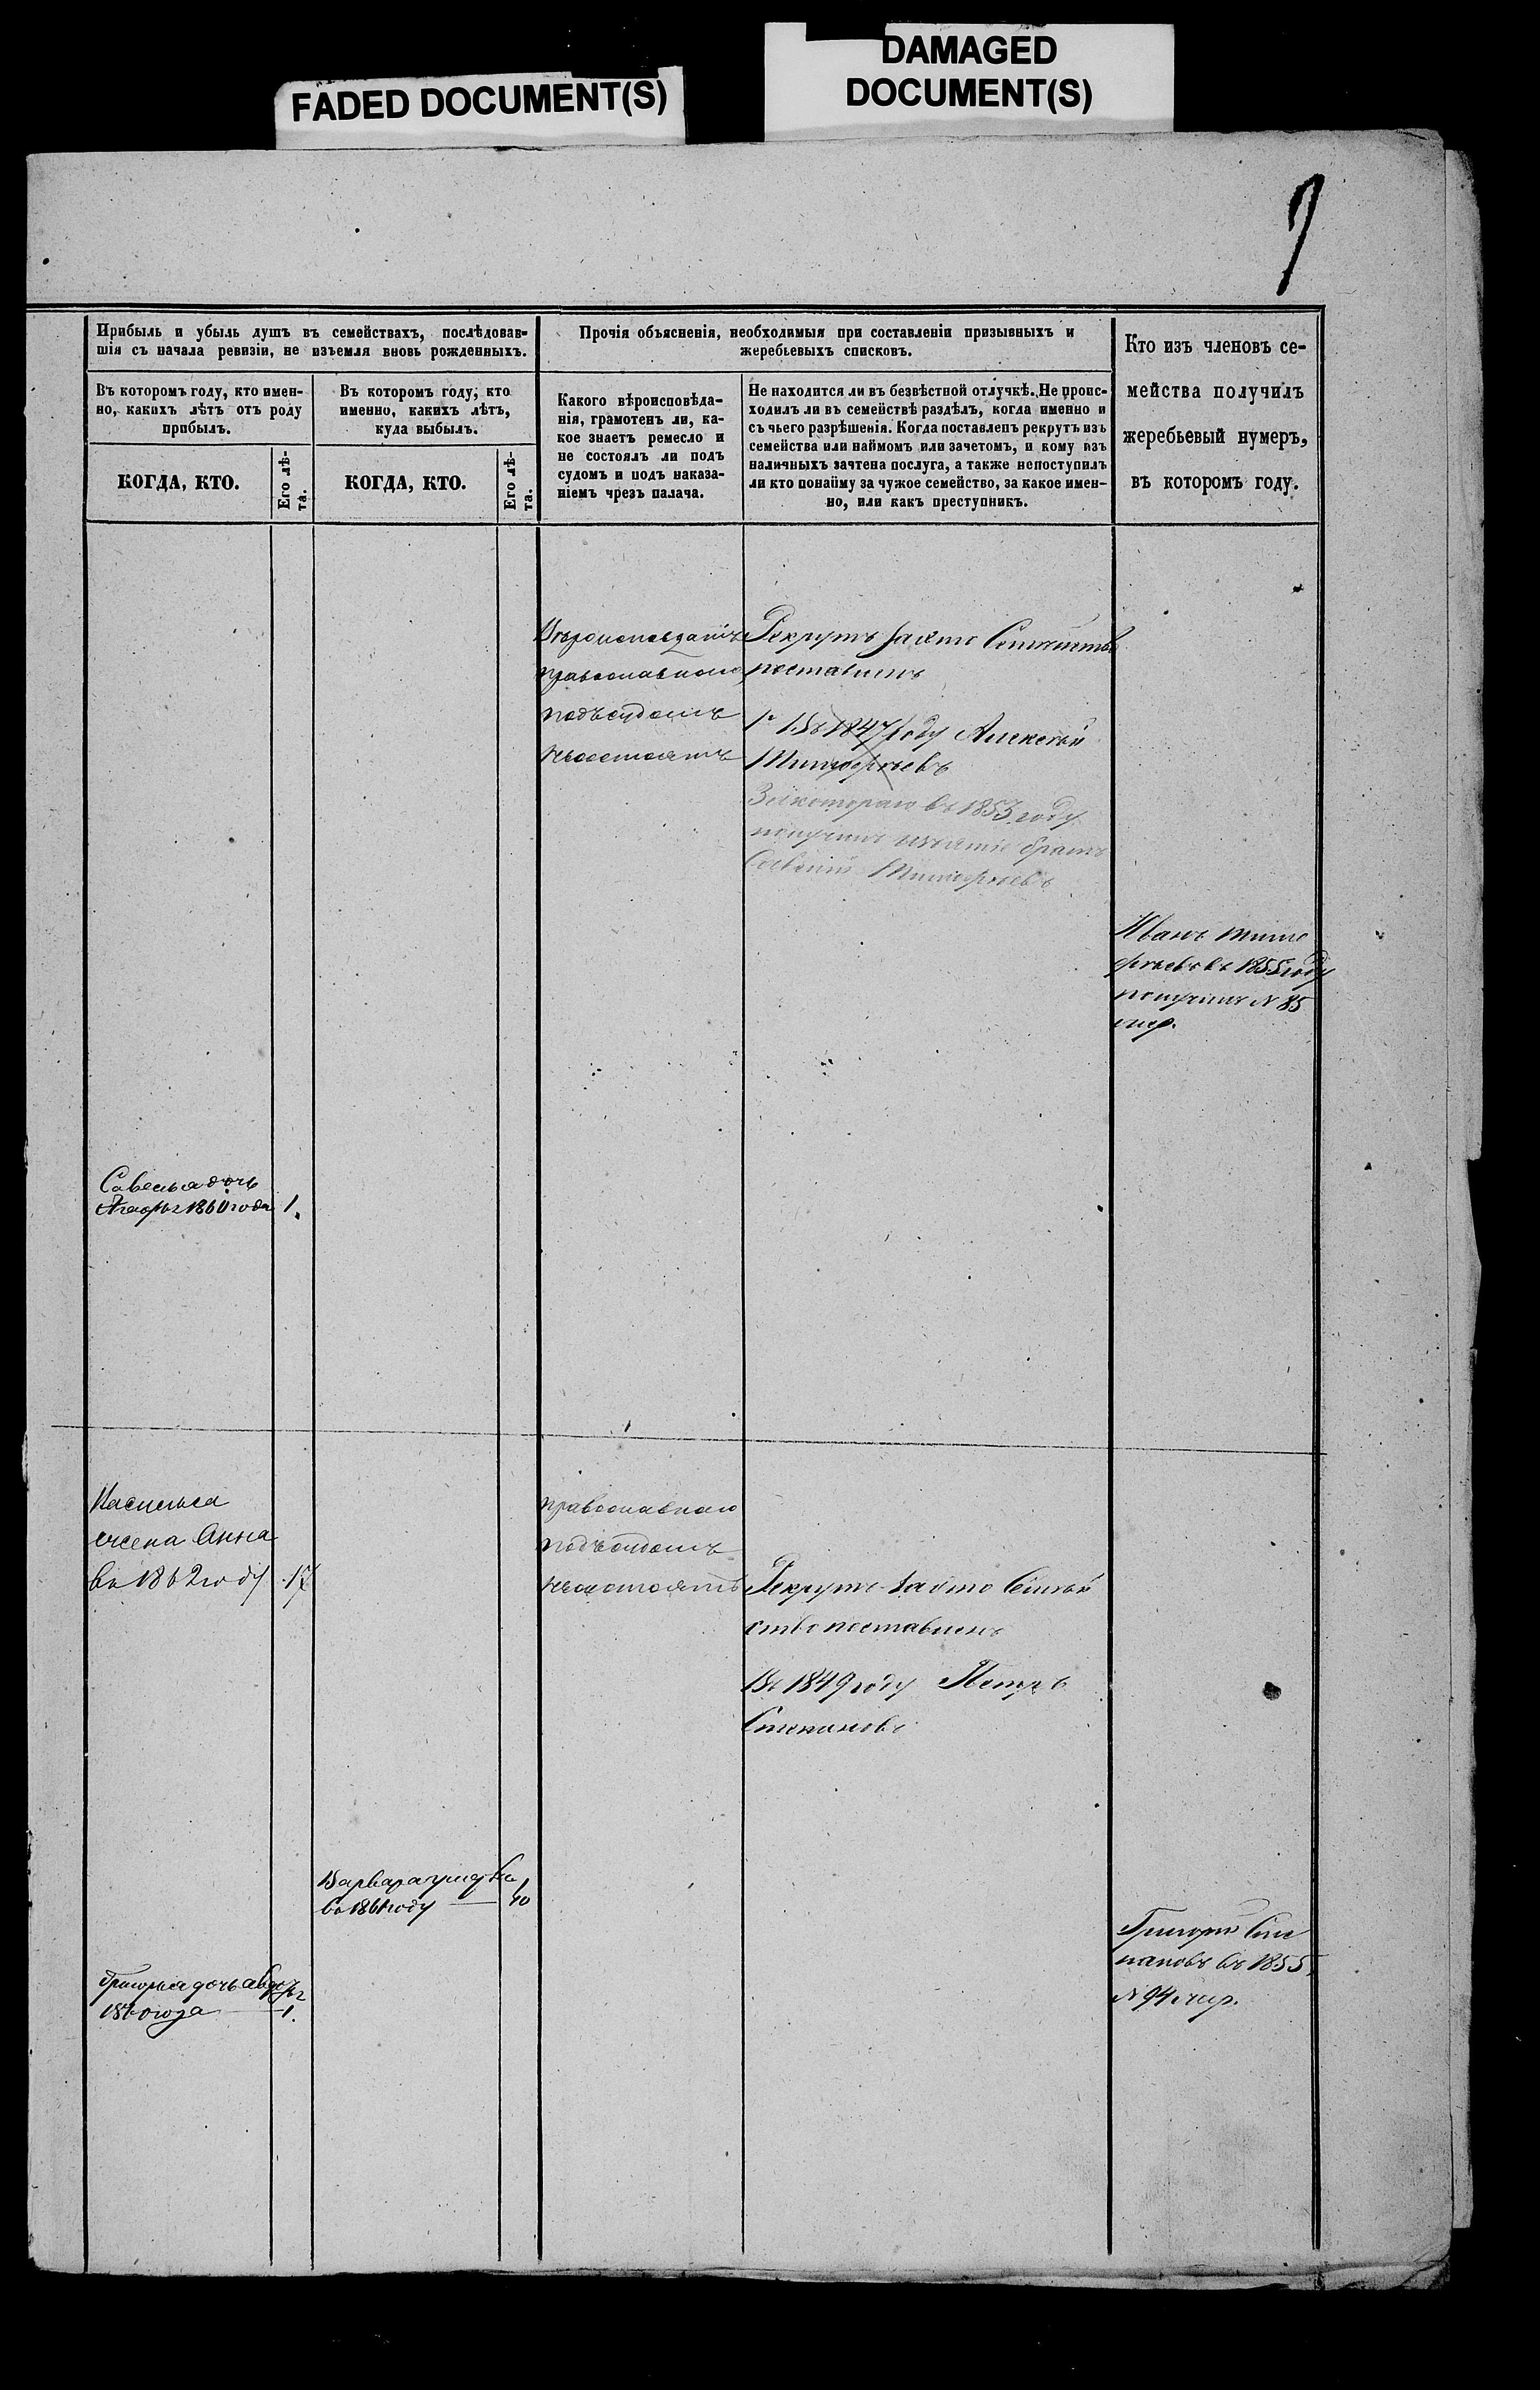 FADED DOCUMENT(S)
DAMAGED
DOCUMENT(S)
Прибыль и убыль душъ въ семействахъ, послѣдовав-
шія съ начала ревизіи, не изъемля вновь рожденныхъ.
Въ которомъ году, кто имен-
но, какихъ лѣтъ отъ роду
прибылъ.
КОГДА, КТО.
Его лѣ-
та.
Въ которомъ году, кто
именно, какихъ лѣтъ,
куда выбылъ.
КОГДА, КТО.
Его лѣ-
та.
Прочія объясненія, необходимыя при составленіи призывныхъ и
жеребьевыхъ списковъ.
Какого вѣроисповѣда-
нія, грамотенъ ли, ка-
кое знаетъ ремесло и
не состоялъ ли подъ
судомъ и подъ наказа-
ніемъ чрезъ палача.
Не находится ли въ безвѣстной отлучкѣ. Не проис-
ходилъ ли въ семействѣ раздѣлъ, когда именно и
съ чьего разрѣшенія. Когда поставленъ рекрутъ изъ
семейства или наймомъ или зачетомъ, и кому изъ
наличныхъ зачтена послуга, а также непоступилъ
ли кто понайму за чужое семейство, за какое имен-
но, или какъ преступникъ.
Кто изъ членовъ се-
мейства получилъ
жеребьевый нумеръ,
въ которомъ году.
православного
подъсудомъ
несостоятъ
Рекрутъ заето Семейство
поставленъ
Въ 1847 году Алексѣй
Тимофѣевъ
Закотораго въ 1853 году
получилъ братъ
Савелий Тимофѣевъ
Иванъ Тимо
фѣевъ въ 1855 году
получилъ № 85
Савелья дочь
1860 года 1.
жена Анна
въ 1862 году 17
православного
подъсудомъ
несостоятъ
Рекрутъ заето Семѣй
ство поставленъ
Въ 1849 году Петръ
Степановъ
Варвара
въ 1861 году 40
Григорий Сте
пановъ въ 1855
№ 94
Григорья дочь
1860 года 1.